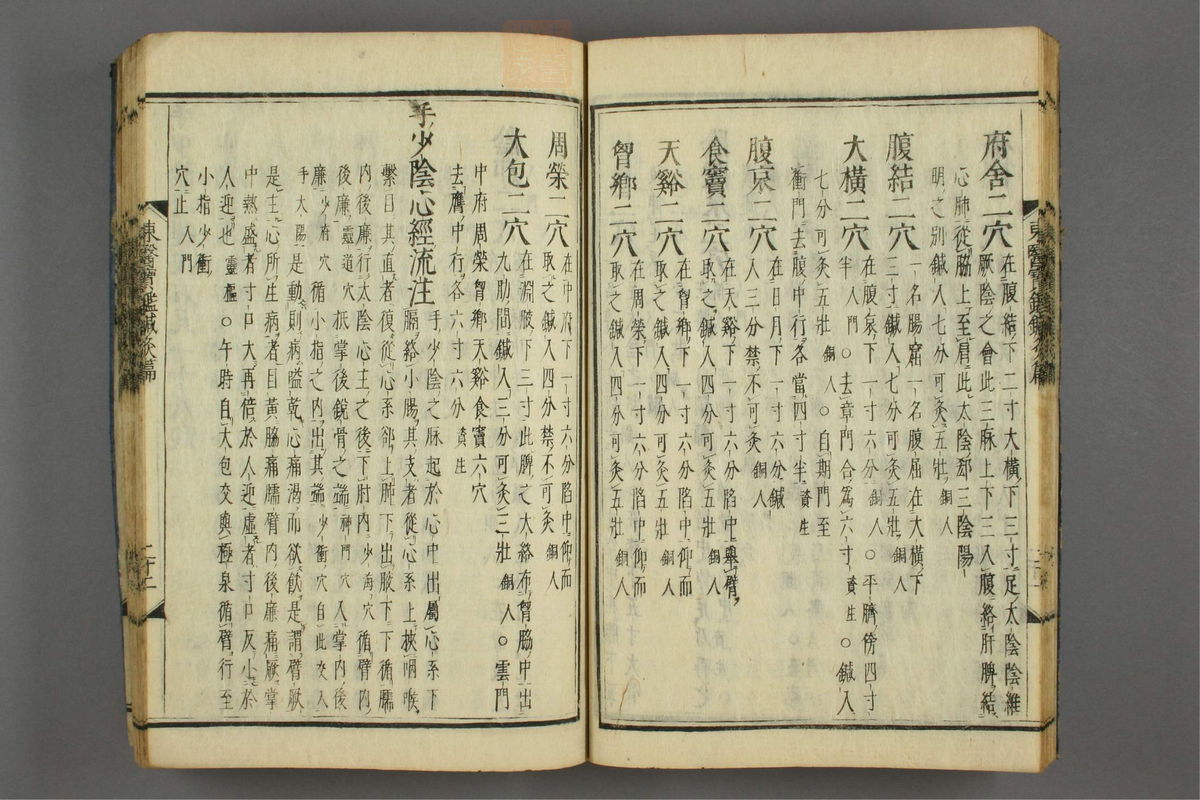 府舍二穴在腹結下二寸大橫下三寸足太陰陰維
厥陰之會此三脉上下三入腹絡肝脾結
心肺從脇上至肩此太陰郄三陰陽
明之別鍼入七分可灸五壯銅人
腹結二穴一名腸窟一名腹屈在大橫下
三寸鍼入七分可灸五壯銅人
大橫二穴在腹哀下一寸六分銅人○平臍傍四寸
半入門○去章門合爲六寸資生○鍼入
七分可灸五壯銅人○自期門至
衝門去腹中行各當四寸半資生
腹哀二穴在日月下一寸六分鍼
入三分禁不可灸銅人
食竇二穴在天谿下一寸六分陷中擧臂
取之鍼入四分可灸五壯銅人
天谿二穴在胷鄕下一寸六分陷中仰而
取之鍼入四分可灸五壯銅人
胷鄕二穴在周榮下一寸六分陷中仰而
取之鍼入四分可灸五壯銅人
東醫寶鑑鍼灸篇
周榮二穴在中府下一寸六分陷中仰而
取之鍼入四分禁不可灸銅人
大包二穴在淵腋下三寸此脾之大絡布胷脇中出
九肋間鍼入三分可灸三壯銅人○雲門
中府周榮胷鄕天谿食竇六穴
去膺中行各六寸六分資生
手少陰心經流注手少陰之脉起於心中出屬心系下
膈絡小腸其支者從心系上挾咽喉
繫目其直者復從心系郤上肺下出腋下下循臑
內後廉行太陰心主之後下肘內少海穴循臂內
後廉靈道穴抵掌後銳骨之端神門穴入掌內後
廉少府穴循小指之內出其端少衝穴自此交入
手太陽是動則病嗌乾心痛渴而欲飮是謂臂厥
是主心所生病者目黃脇痛臑臂內後廉痛厥掌
中熱盛者寸口大再倍於人迎虛者寸口反小於
人迎也靈樞○午時自大包交與極泉循臂行至
小指少衝
穴止入門
東醫寶鑑鍼灸篇
二十二